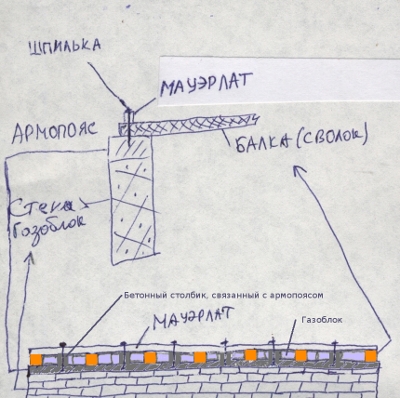 ШПИЛЬКА
МАУЭРЛАТ
АРМОПОЯС
БАЛКА (СВОЛОК)
Стена
Газоблок
Бетонный столбик, связанный с армопоясом
МАУЭРЛАТ
Газоблок